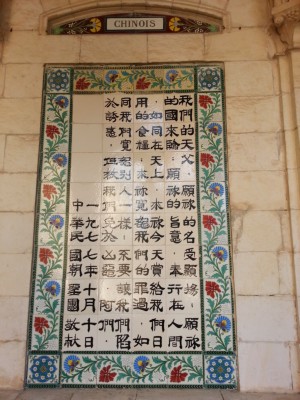 CHINOIS
我們的天父，願祢的名受顯揚，願祢
的國來臨，願祢的旨意，奉行在人間
，如同在天上。求祢今天賞給我們日
用的食糧，求祢寬免我們的罪過，如
同我們寬恕別人一樣，不要讓我們陷
於誘惑，但救我們免於凶惡。阿們。
一九七七年十月十日
中華民國朝聖團敬獻